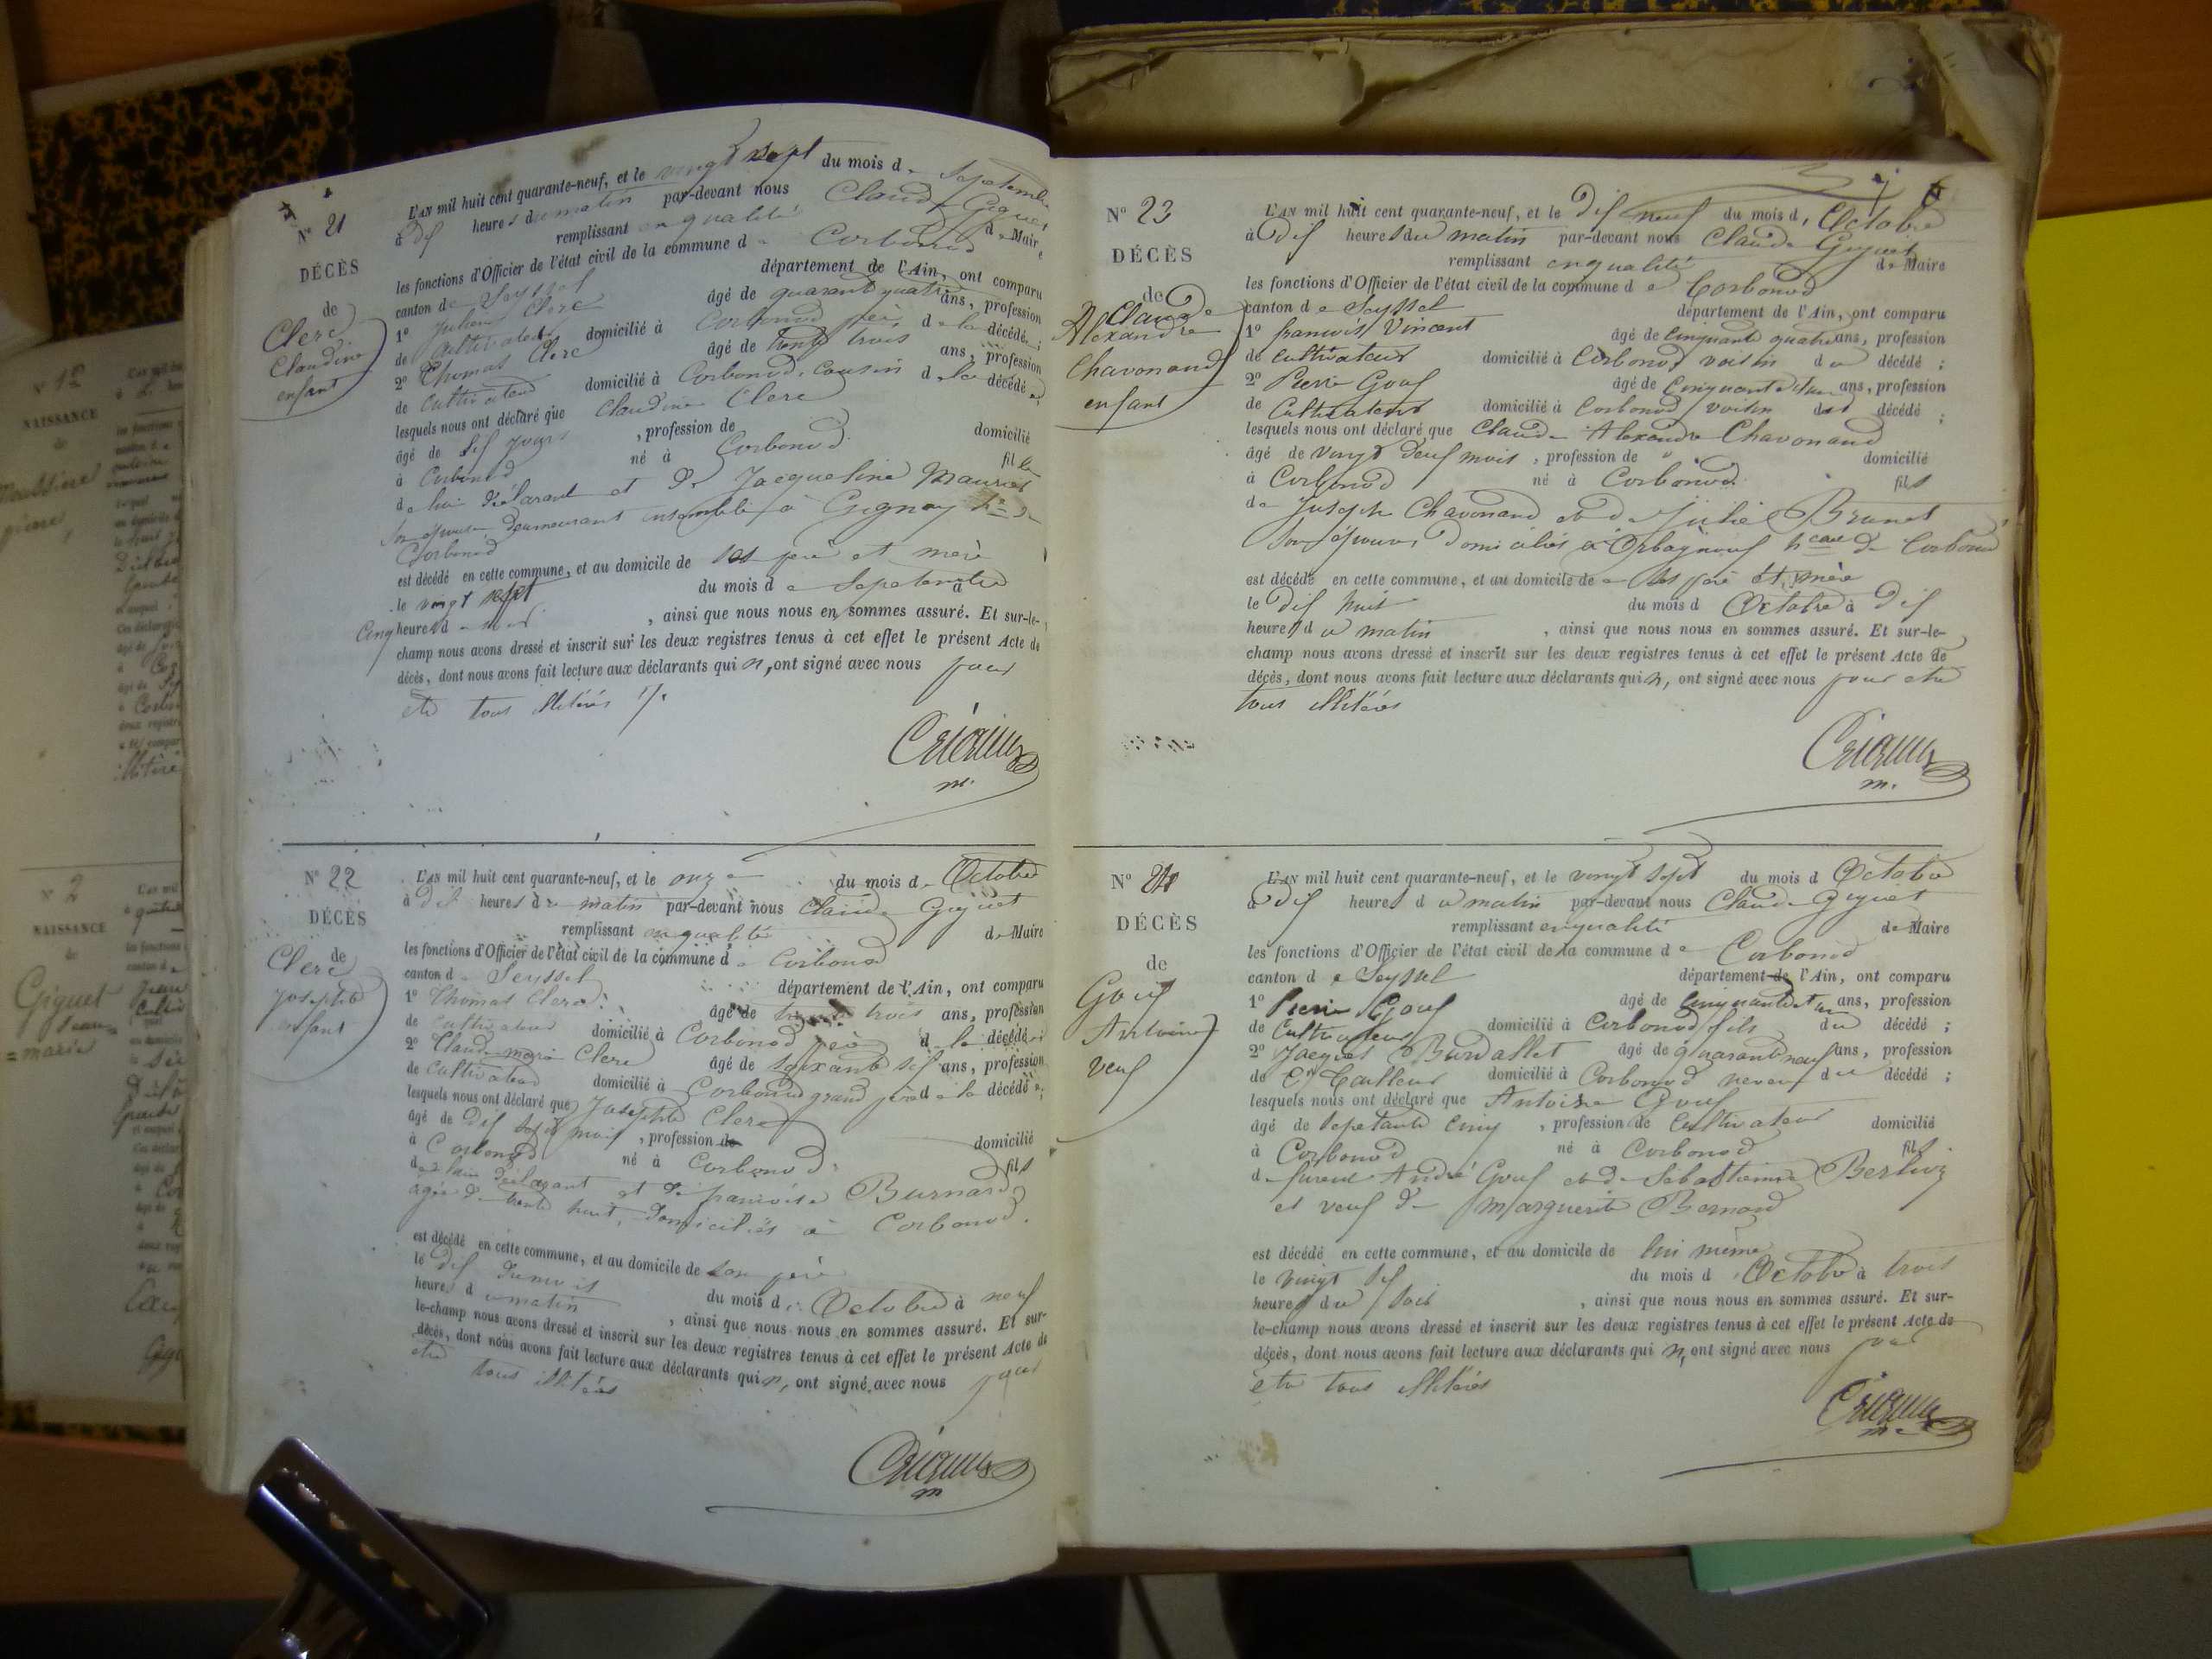 N° 21
DÉCÈS
de
Clerc
Claudine
enfant
L'AN mil huit cent quarante-neuf, et le vingt sept du mois de Septembre
à dix heures du matin par-devant nous Claude Giguet
remplissant en qualité de Maire
les fonctions d'Officier de l'état civil de la commune de Corbonod
canton de Seyssel département de l'Ain, ont comparu
1° Julien Clerc âgé de quarante quatre ans, profession
de cultivateur domicilié à Corbonod père de la décédée;
2° Thomas Clerc âgé de trente trois ans, profession
de cultivateur domicilié à Corbonod, cousin de la décédée;
lesquels nous ont déclaré que Claudine Clerc
âgé de dix jours , profession de domicilié
à Corbonod né à Corbonod fille
de lui déclarant et de Jacqueline
son épouse demeurant ensemble à Gignay h. de
Corbonod
est décédé en cette commune, et au domicile de ses père et mère
le vingt sept du mois de Septembre à
cinq heures du , ainsi que nous nous en sommes assuré. Et sur-le-
champ nous avons dressé et inscrit sur les deux registres tenus à cet effet le présent Acte de
décès, dont nous avons fait lecture aux déclarants qui n'ont signé avec nous pour
etre tous illitérés
N° 22
DÉCÈS
de
Clerc
Josephte
enfant
L'AN mil huit cent quarante-neuf, et le onze du mois d Octobre
à dix heures du matin par-devant nous Claude Giguet
remplissant en qualité de Maire
les fonctions d'Officier de l'état civil de la commune de Corbonod
canton de Seyssel département de l'Ain, ont comparu
1° Thomas Clerc âgé de trente trois ans, profession
de cultivateur domicilié à Corbonod père de la décédée;
2° Claude marie Clerc âgé de soixante dix ans, profession
de cultivateur domicilié à Corbonod grand père de la décédée;
lesquels nous ont déclaré que Josephte Clerc
âgé de dix sept mois , profession de domicilié
à Corbonod né à Corbonod fils
de lui déclarant et de françoise Burnard
agée de trente huit, domiciliés à Corbonod.
est décédé en cette commune, et au domicile de son père
le dix du mois du mois d Octobre à neuf
heures du matin , ainsi que nous nous en sommes assuré. Et sur-
le-champ nous avons dressé et inscrit sur les deux registres tenus à cet effet le présent Acte de
décès, dont nous avons fait lecture aux déclarants qui n, ont signé avec nous pour
etre tous illitérés
N° 23
DÉCÈS
de
Claude
Alexandre
Chavonand
enfant
L'AN mil huit cent quarante-neuf, et le dix neuf du mois d, Octobre
à dix heures du matin par-devant nous Claude Giguet
remplissant en qualité de Maire
les fonctions d'Officier de l'état civil de la commune de Corbonod
canton de Seyssel département de l'Ain, ont comparu
1° francois Vincent âgé de cinquante quatre ans, profession
de cultivateur domicilié à Corbonod voisin du décédé ;
2° Pierre Gouf âgé de cinquante et un ans, profession
de Cultivateur domicilié à Corbonod voisin du décédé ;
lesquels nous ont déclaré que Claude Alexandre Chavonand
âgé de vingt deux mois , profession de domicilié
à Corbonod né à Corbonod fils
de Joseph Chavonand et de Julie Brunet
son épouse, domiciliés à Orbagnoux hcau de Corbonod
est décédé en cette commune, et au domicile de ses père et mère
le dix huit du mois d Octobre à dix
heures du matin , ainsi que nous nous en sommes assuré. Et sur-le-
champ nous avons dressé et inscrit sur les deux registres tenus à cet effet le présent Acte de
décès, dont nous avons fait lecture aux déclarants qui n, ont signé avec nous pour etre
tous illitérés
N° 24
DÉCÈS
de
Gouf
Antoine
veuf
L'AN mil huit cent quarante-neuf, et le vingt sept du mois d Octobre
à dix heures du matin par-devant nous Claude Giguet
remplissant en qualité de Maire
les fonctions d'Officier de l'état civil de la commune de Corbonod
canton de Seyssel département de l'Ain, ont comparu
1° Pierre Gouf âgé de cinquante et un ans, profession
de Cultivateur domicilié à Corbonod fils du décédé ;
2° Jacques Burdallet âgé de quarante neuf ans, profession
de Tailleur domicilié à Corbonod neveu du décédé ;
lesquels nous ont déclaré que Antoine Gouf
âgé de septante cinq , profession de Cultivateur domicilié
à Corbonod né à Corbonod fils
de furent André Gouf et de Sébastienne Berlioz
et veuf de Marguerite Bernard
est décédé en cette commune, et au domicile de lui même
le vingt six du mois d Octobre à trois
heures du soir , ainsi que nous nous en sommes assuré. Et sur-
le-champ nous avons dressé et inscrit sur les deux registres tenus à cet effet le présent Acte de
décès, dont nous avons fait lecture aux déclarants qui n, ont signé avec nous pour
etre tous illitérés